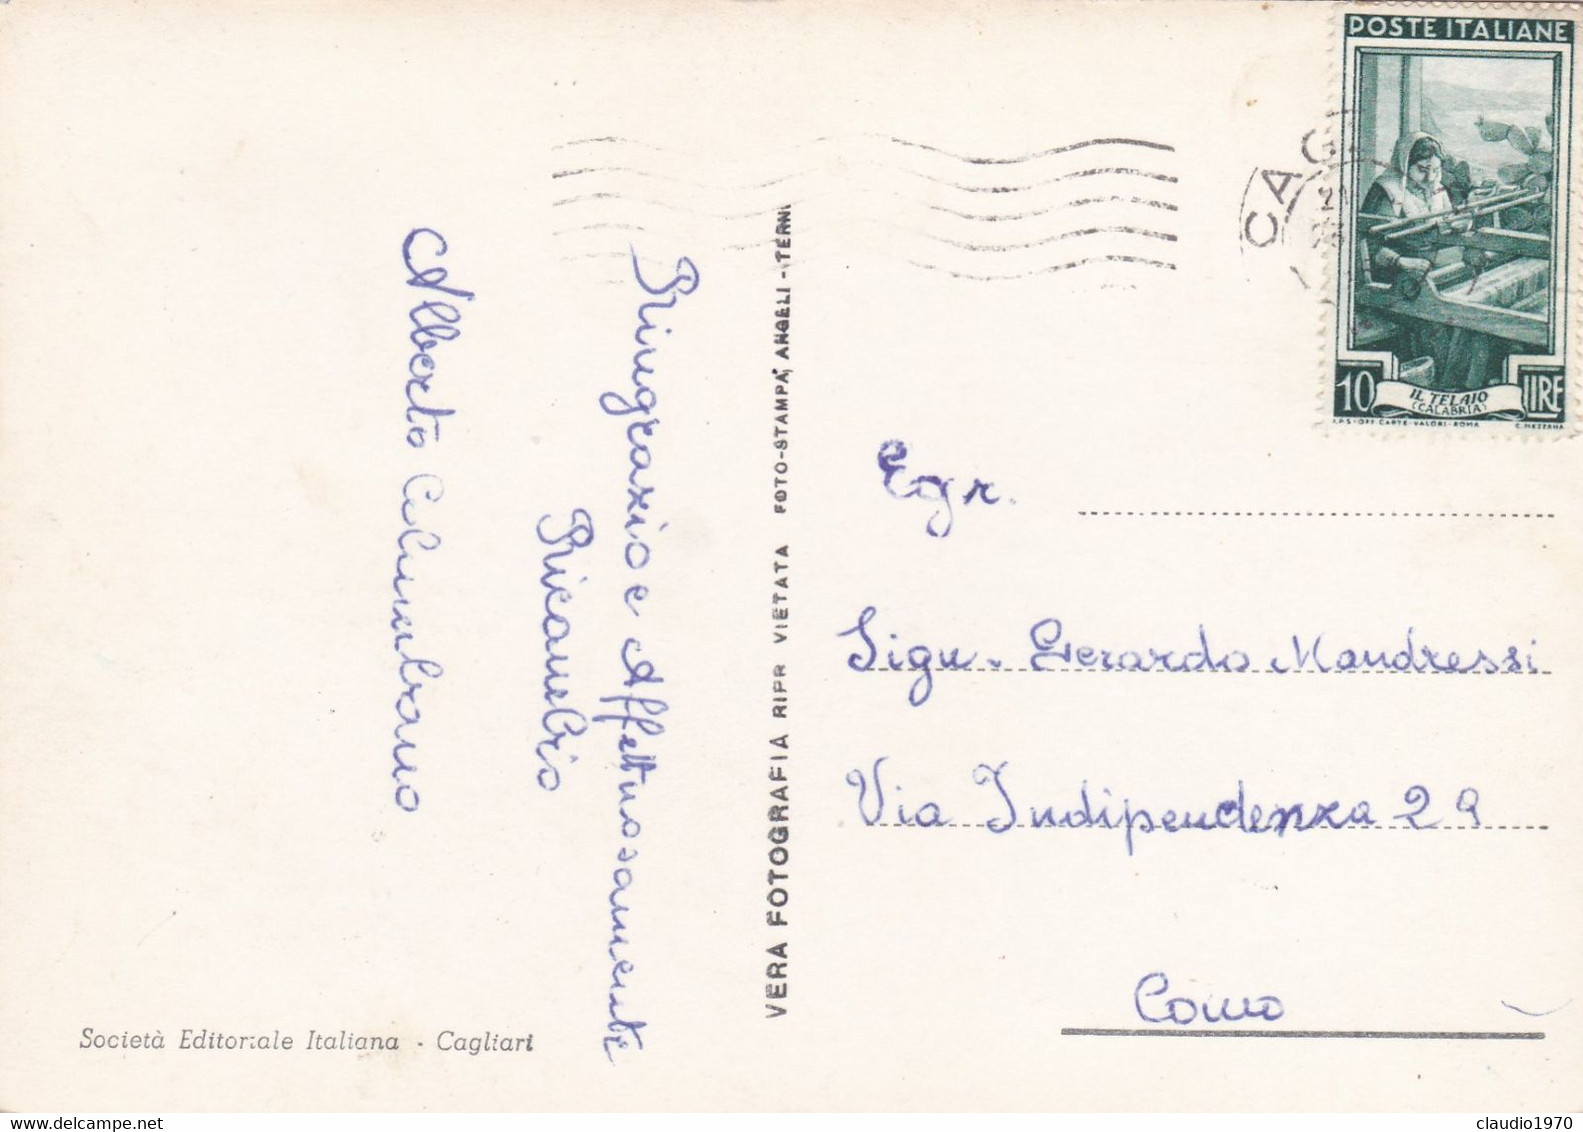 POSTE ITALIANE
CAG
10
IL TELAIO
(CALABRIA)
LIRE
I.P.S-OFF. CARTE-VALORI-ROMA
C. MEZZANA
Ringrazio e Affettuosamente
Ricambio
Alberto
VERA FOTOGRAFIA RIPR VIETATA FOTO-STAMPA, ANGELI - TERNI
Egr.
Sign. Gerardo Mandressi
Via Indipendenza 29
Como
Società Editoriale Italiana - Cagliari
claudio1970